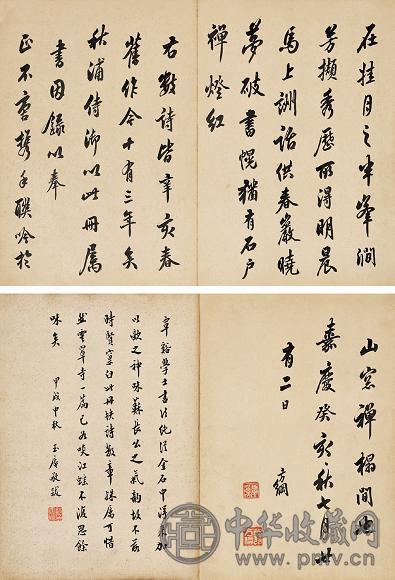 在挂月之半峯澗
芳擷秀歷所得明晨
馬上訓話供春巖曉
夢破書幌猶有石户
禪燈紅
右數詩皆辛亥春
舊作今十有三年矣
秋浦侍御以此冊属
書因録以奉
正不啻携手聯吟於
山窓禪榻間也
嘉慶癸亥秋七月廿
有二日
方綱
覃谿學士書法純從金石中得來加
以歛之神味蘇長公之氣韵故不落
時賢窠臼此冊詩數章殊属可惜
然雲罩寺一篇已如啖江不復思餘
味矣
甲戌中秋 玉敬跋
中华收藏网